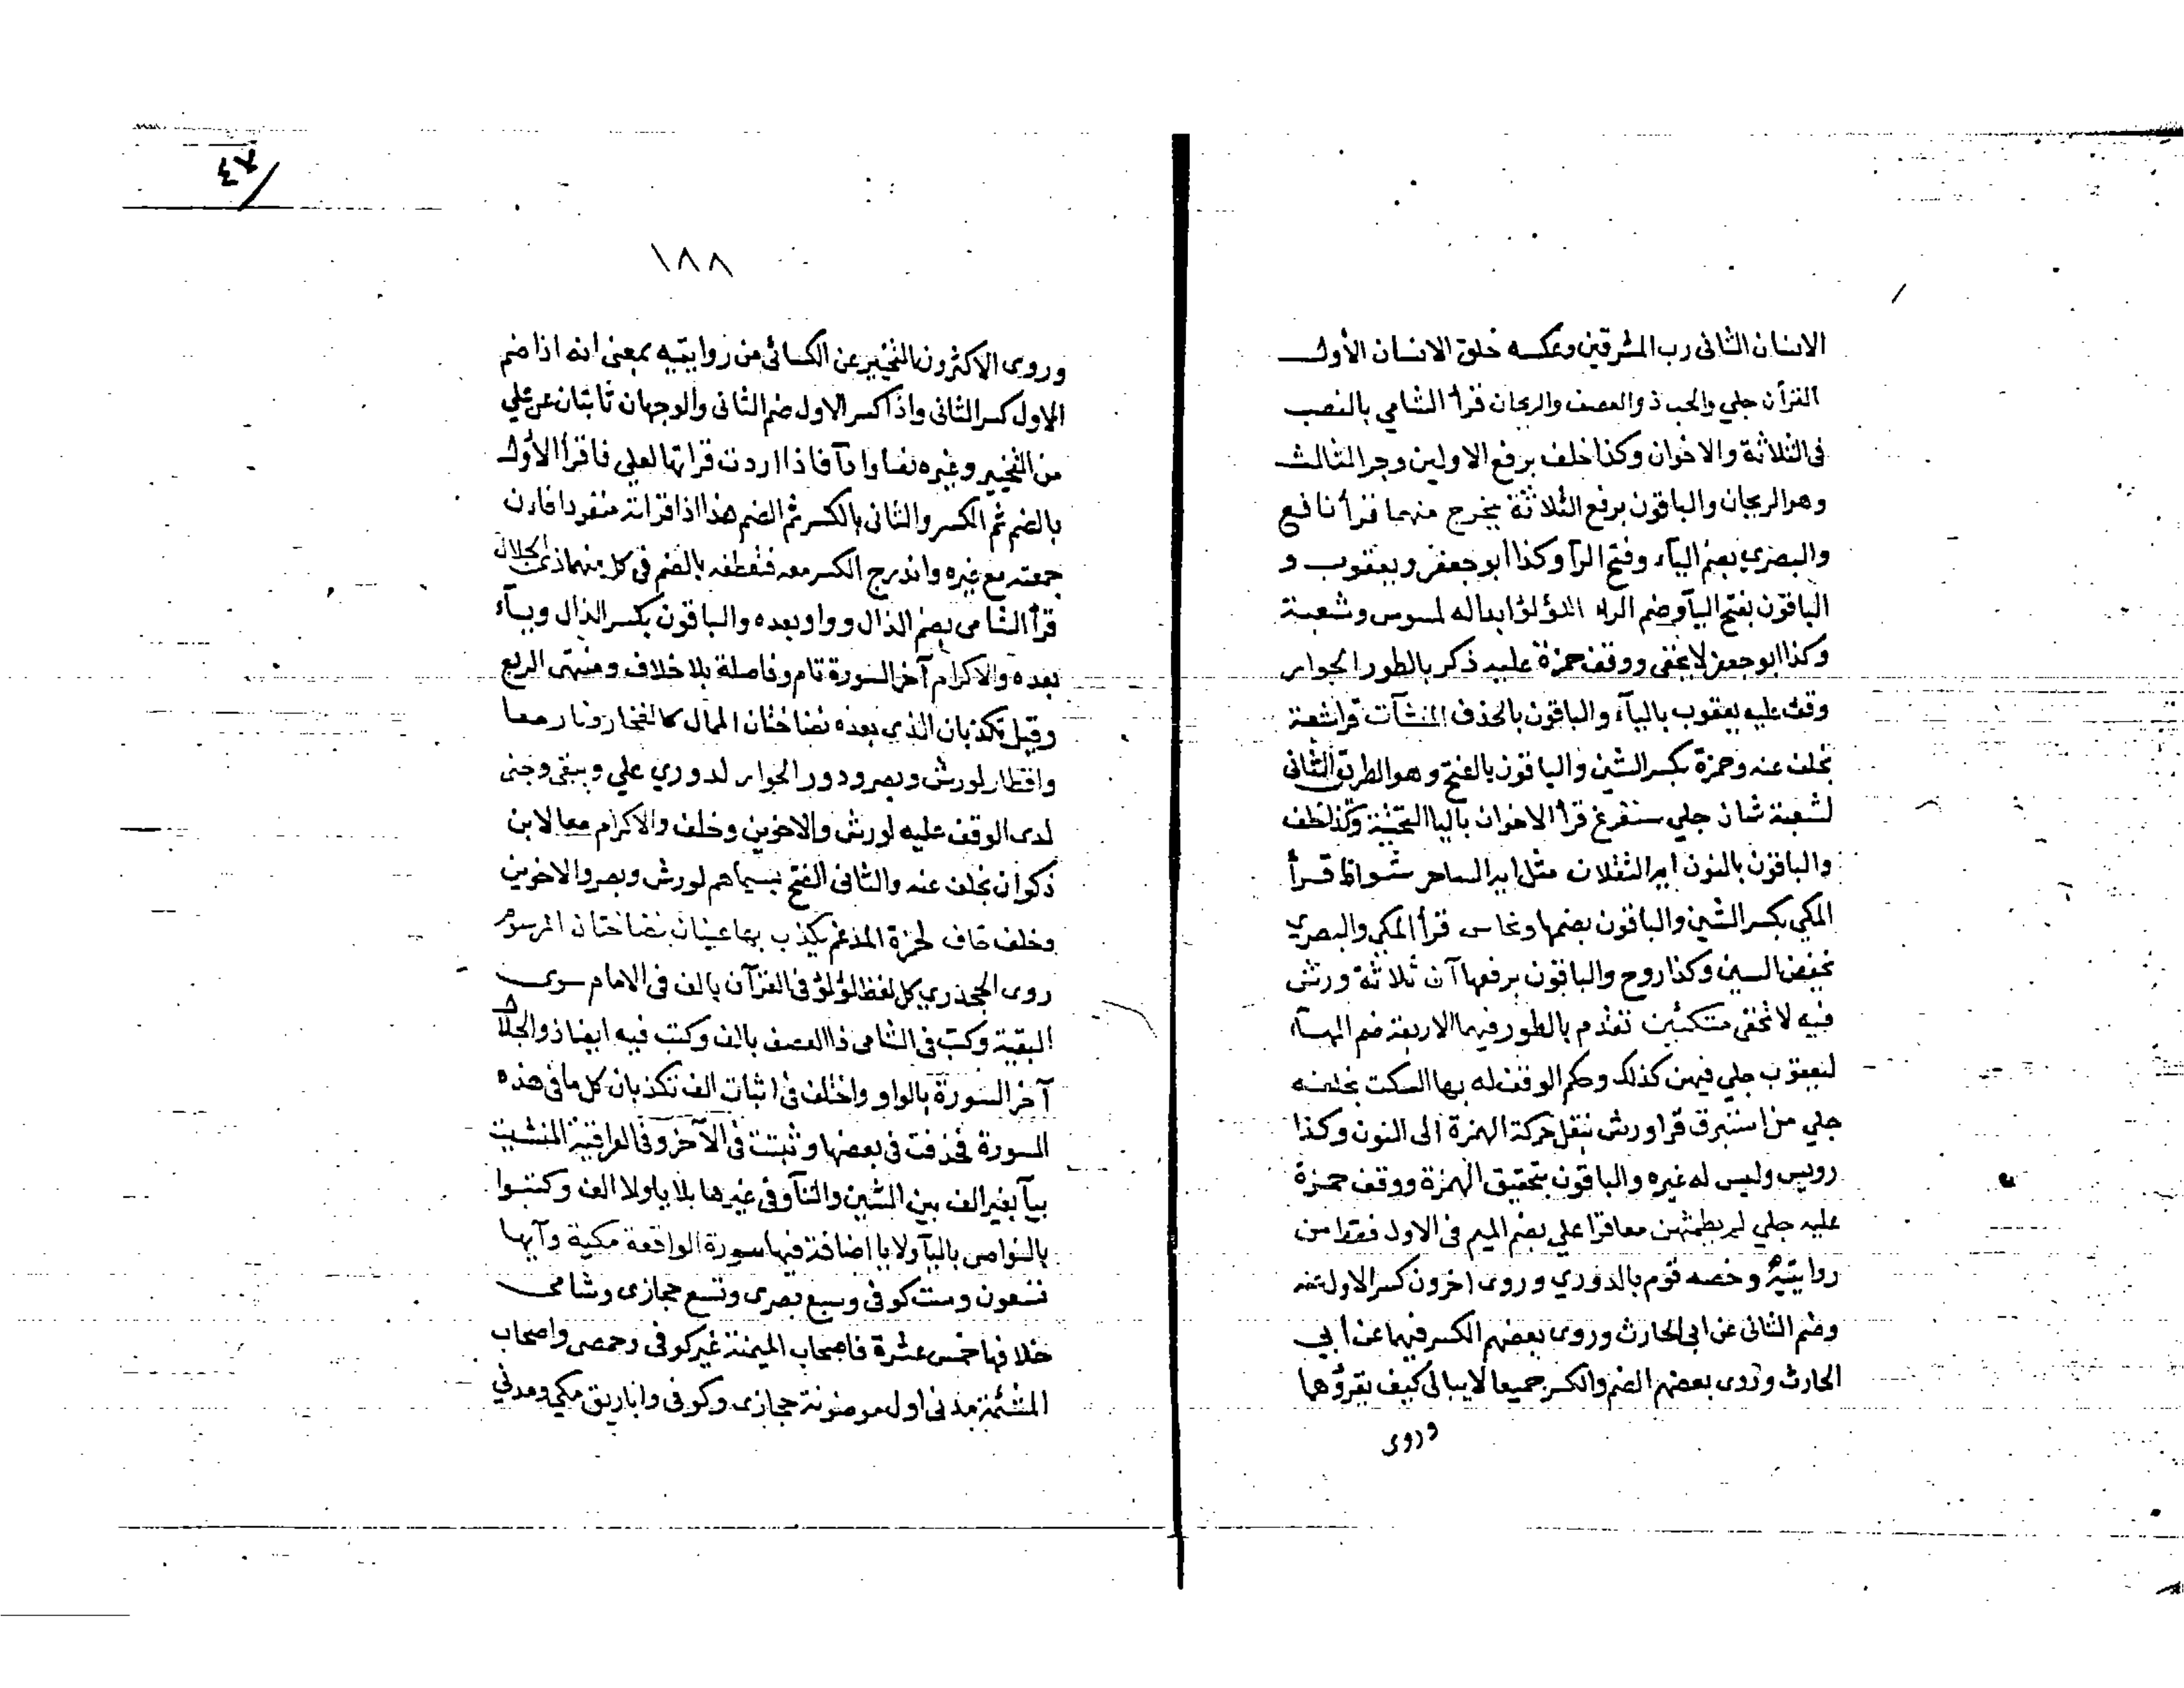 الانسان الثانى رب المشرقين وعكسه خلق الانسان الأول
القرأن جلي والحب ذو العصف والريحان قرأ الشامي بالنصب
فى الثلاثة والاخوان وكذا خلف برفع الاولين وجر الثالث
وهو الريحان والباقون برفع الثلاثة يخرج منهما قرأ نافع
والبصري بضم الياء وفتح الرآ وكذا ابو جعفر ويعقوب و
الباقون بفتح اليآ وضم الراء اللؤلؤ ابداله لسوس وشعبة
وكذا ابو جعفر لا يخفى ووقف حمزة عليه ذكر بالطور الجوار
وقف عليه يعقوب باليآء والباقون بالحذف المنشآت قرا شعبة
بخلف عنه وحمزة بكسر الشين والباقون بالفتح وهو الطريق الثانى
لشعبة شان جلي سنفرغ قرأ الاخوان باليا التحتية وكذا خلف
والباقون بالنون ايه الثقلان مثل ايه الساحر شواظ قرأ
المكي بكسر الشين والباقون بضمها ونحاس قرأ المكي والبصري
بخفض السين وكذا روح والباقون برفعها آن ثلاثة ورش
فيه لا تخفى متكئين تقدم بالطور فيهما الاربعة ضم الهآء
ليعقوب جلي فيهن كذلك وحكم الوقف له بها السكت بخلفه
جلي من استبرق قرا ورش بنقل حركة الهمزة الى النون وكذا
رويس وليس له غيره والباقون بتحقيق الهمزة ووقف حمزة
عليه جلي لم يطمثهن معا قرا علي بضم الميم فى الاول فقط من
روايتيه وخصه قوم بالدوري وروى اخرون كسر الاول عنه
وضم الثانى عن ابى الحارث وروى بعضهم الكسر فيهما عن ابي
الحارث وروى بعضهم الضم والكسر جميعا لا يبالى كيف يقرؤها
وروى
٤٧
١٨٨
وروى الاكثرون التخيير عن الكسائى من روايتيه بمعنى انه اذا ضم
الاول كسر الثانى واذا كسر الاول ضم الثانى والوجهان ثابتان عن علي
من التخيير وغيره نصا وادآ فاذا اردت قراتها لعلي فاقرأ الأول
بالضم ثم الكسر والثانى بالكسر ثم الضم هذا اذا قراته منفردا فان
جمعته مع غيره واندرج الكسر معه فتعطفه بالضم فى كل منهما ذى الجلال
قرأ الشامى بضم الذال وواو بعده والباقون بكسر الذال ويآء
بعده والاكرام آخر السورة تام وفاصلة بلا خلاف ومنتهى الربع
وقيل تكذبان الذى بعده نضاختان الممال كالفخار ونار معا
واقطار لورش وبصر ودور الجوار لدوري علي ويبقى وجنى
لدى الوقف عليه لورش والاخوين وخلف والاكرام معا لابن
ذكوان بخلف عنه والثانى الفتح بسيماهم لورش وبصر والاخوين
وخلف خاف لحمزة المدغم يكذب بها عينان نضاختان المرسوم
روى الجحدري كل لفظ لؤلؤ فى القرآن بالف فى الامام سوى
البقية وكتب فى الشامى ذا العصف بالف وكتب فيه ايضا ذو الجلال
آخر السورة بالواو واختلف فى اثبات الف تكذبان كل ما فى هذه
السورة فحذفت فى بعضها وثبتت فى الآخر وفى العراقية المنشيت
بيآ بغير الف بين الشين والتآ وفى غيرها بلا يا ولا الف وكتبوا
بالنواصى باليآ ولا يا اضافة فيها سورة الواقعة مكية وآيها
تسعون وست كوفى وسبع بصرى وتسع حجازى وشامى
خلافها خمس عشرة فاصحاب الميمنة غير كوفى وحمصى واصحاب
المشئمة مدنى اول موضونة حجازى وكوفى واباريق مكي ومدني